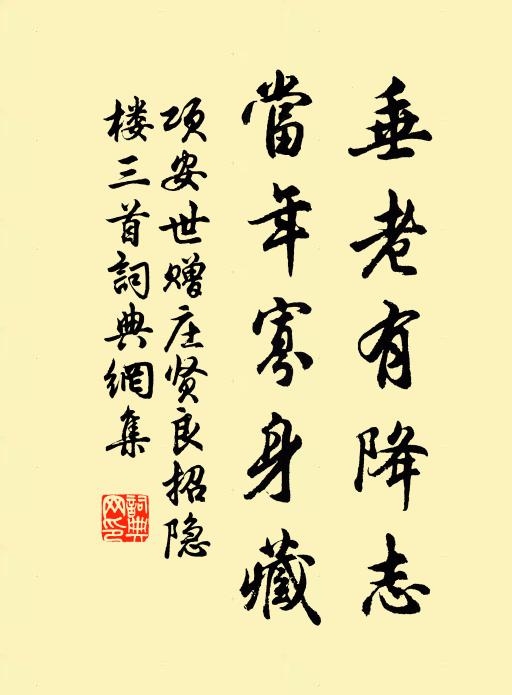 垂老有降志
當年寡身藏
项安世赠庄贤良招隐
楼三首詞典網集
詞典網印